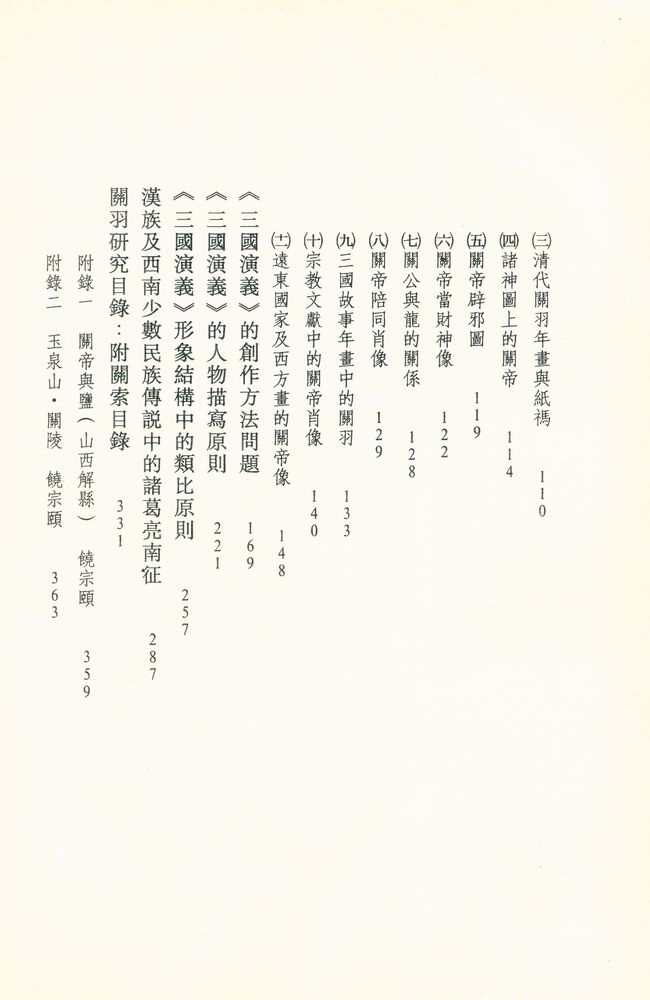 ㈢清代關羽年畫與紙禡 110
㈣諸神圖上的關帝 114
㈤關帝辟邪圖 119
㈥關帝當財神像 122
㈦關公與龍的關係 128
㈧關帝陪同肖像 129
㈨三國故事年畫中的關羽 133
㈩宗教文獻中的關帝肖像 140
(十一)遠東國家及西方畫的關帝像 148
《三國演義》的創作方法問題 169
《三國演義》的人物描寫原則 221
《三國演義》形象結構中的類比原則 257
漢族及西南少數民族傳説中的諸葛亮南征 287
關羽研究目錄：附關索目錄 331
附錄一 關帝與鹽（山西解縣） 饒宗頤 359
附錄二 玉泉山・關陵 饒宗頤 363